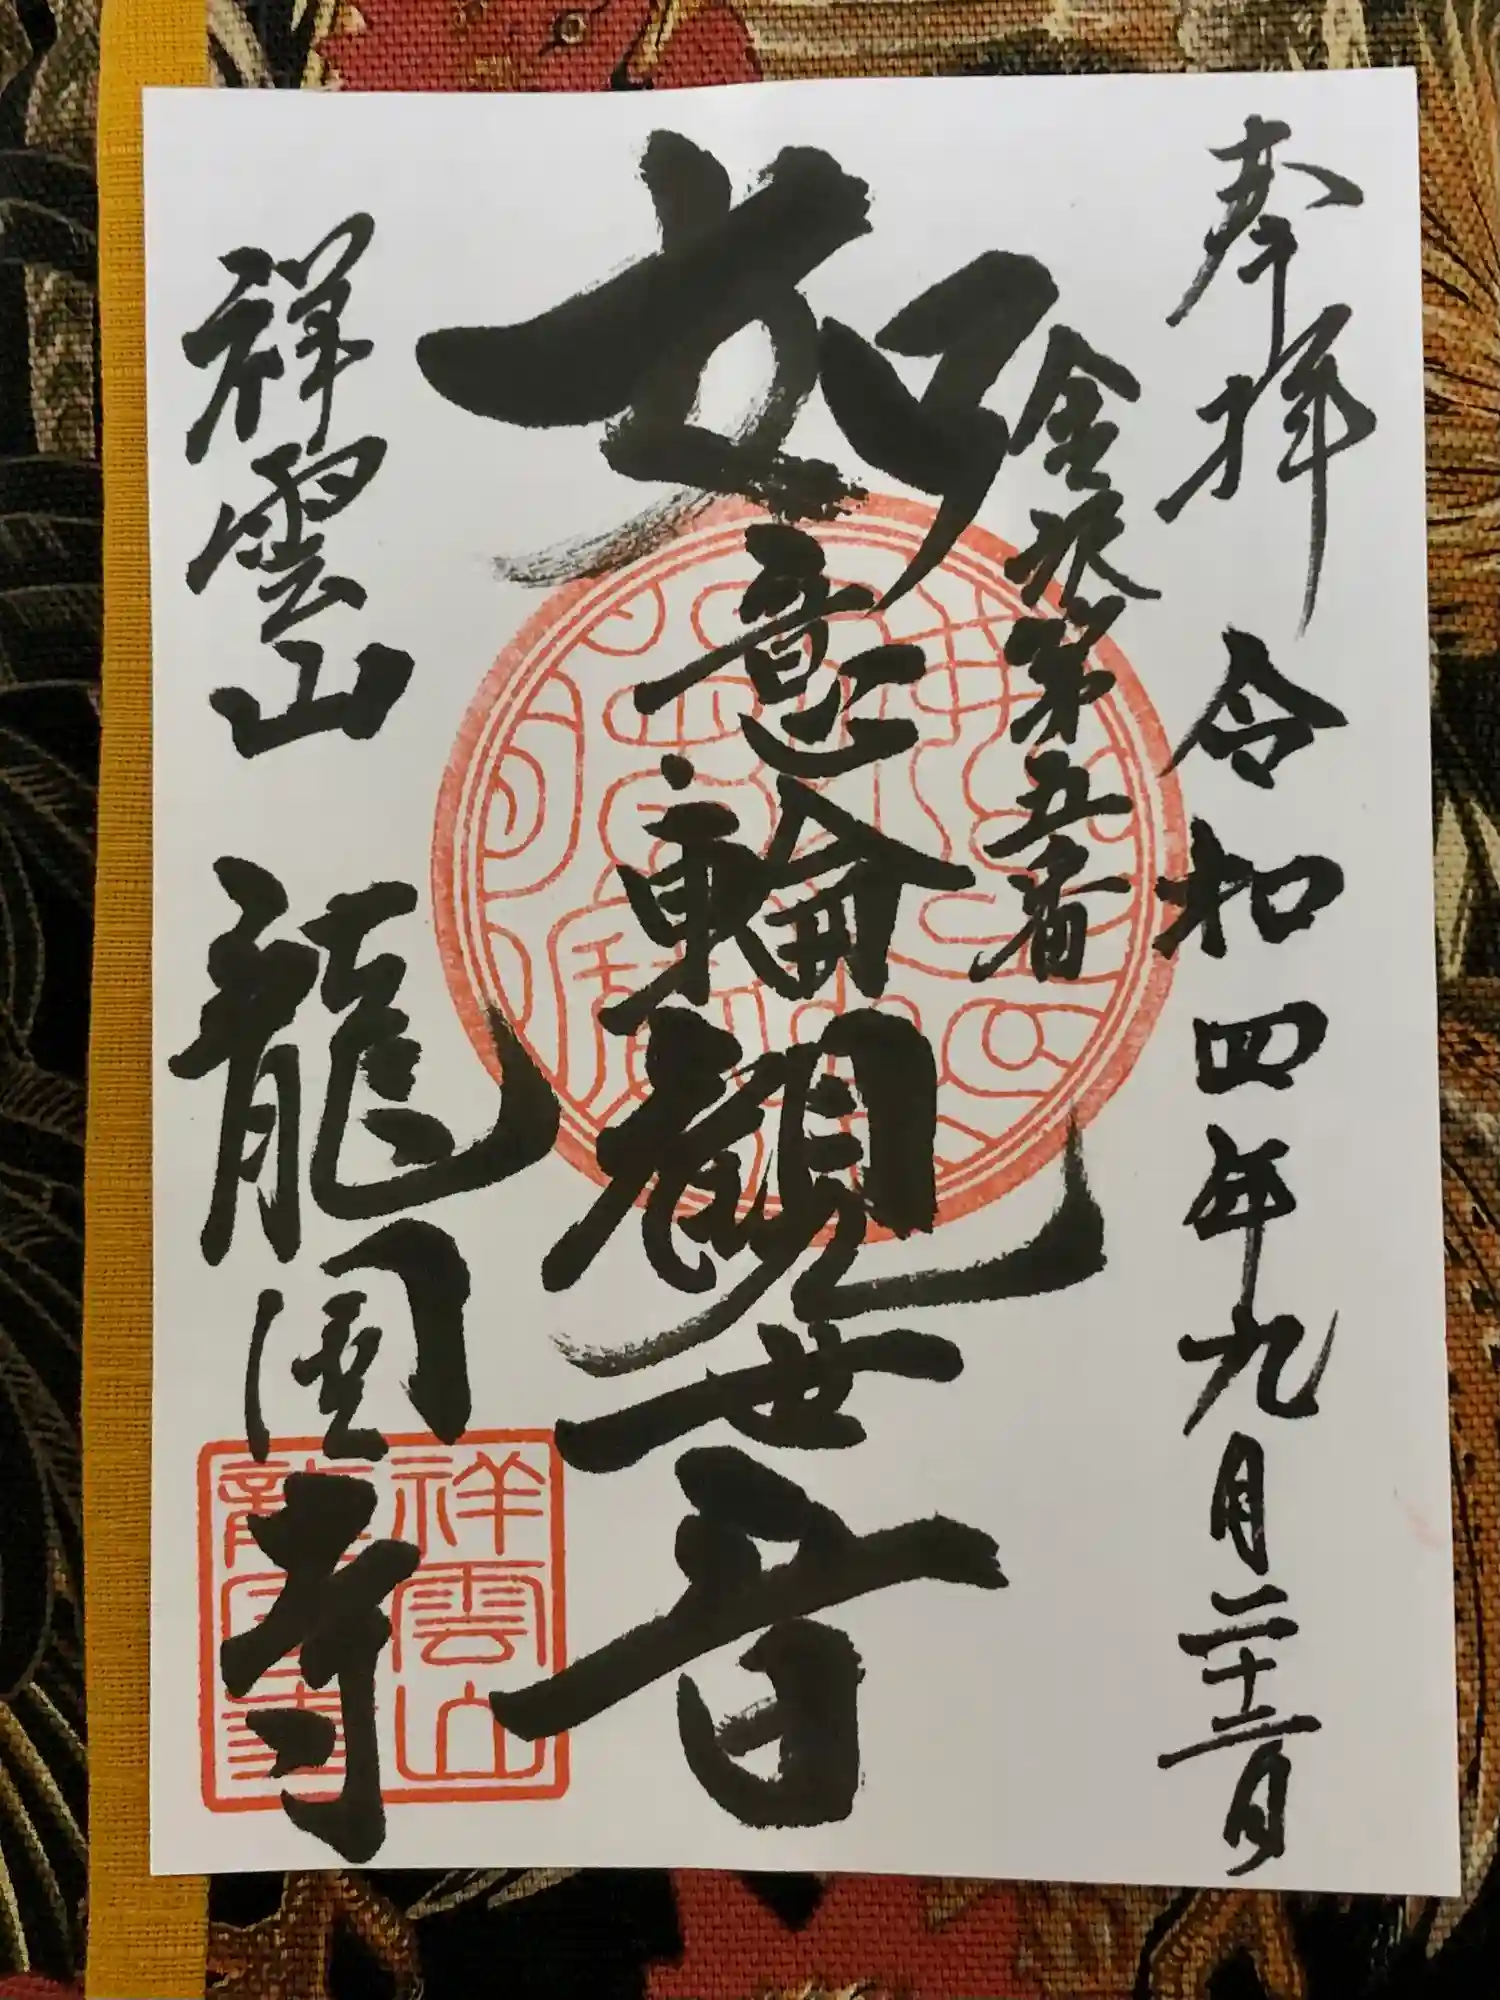 奉拝 令和四年九月二十三日
金沢第五番
如意輪観世音
祥雲山 龍国寺
祥雲山
龍国寺